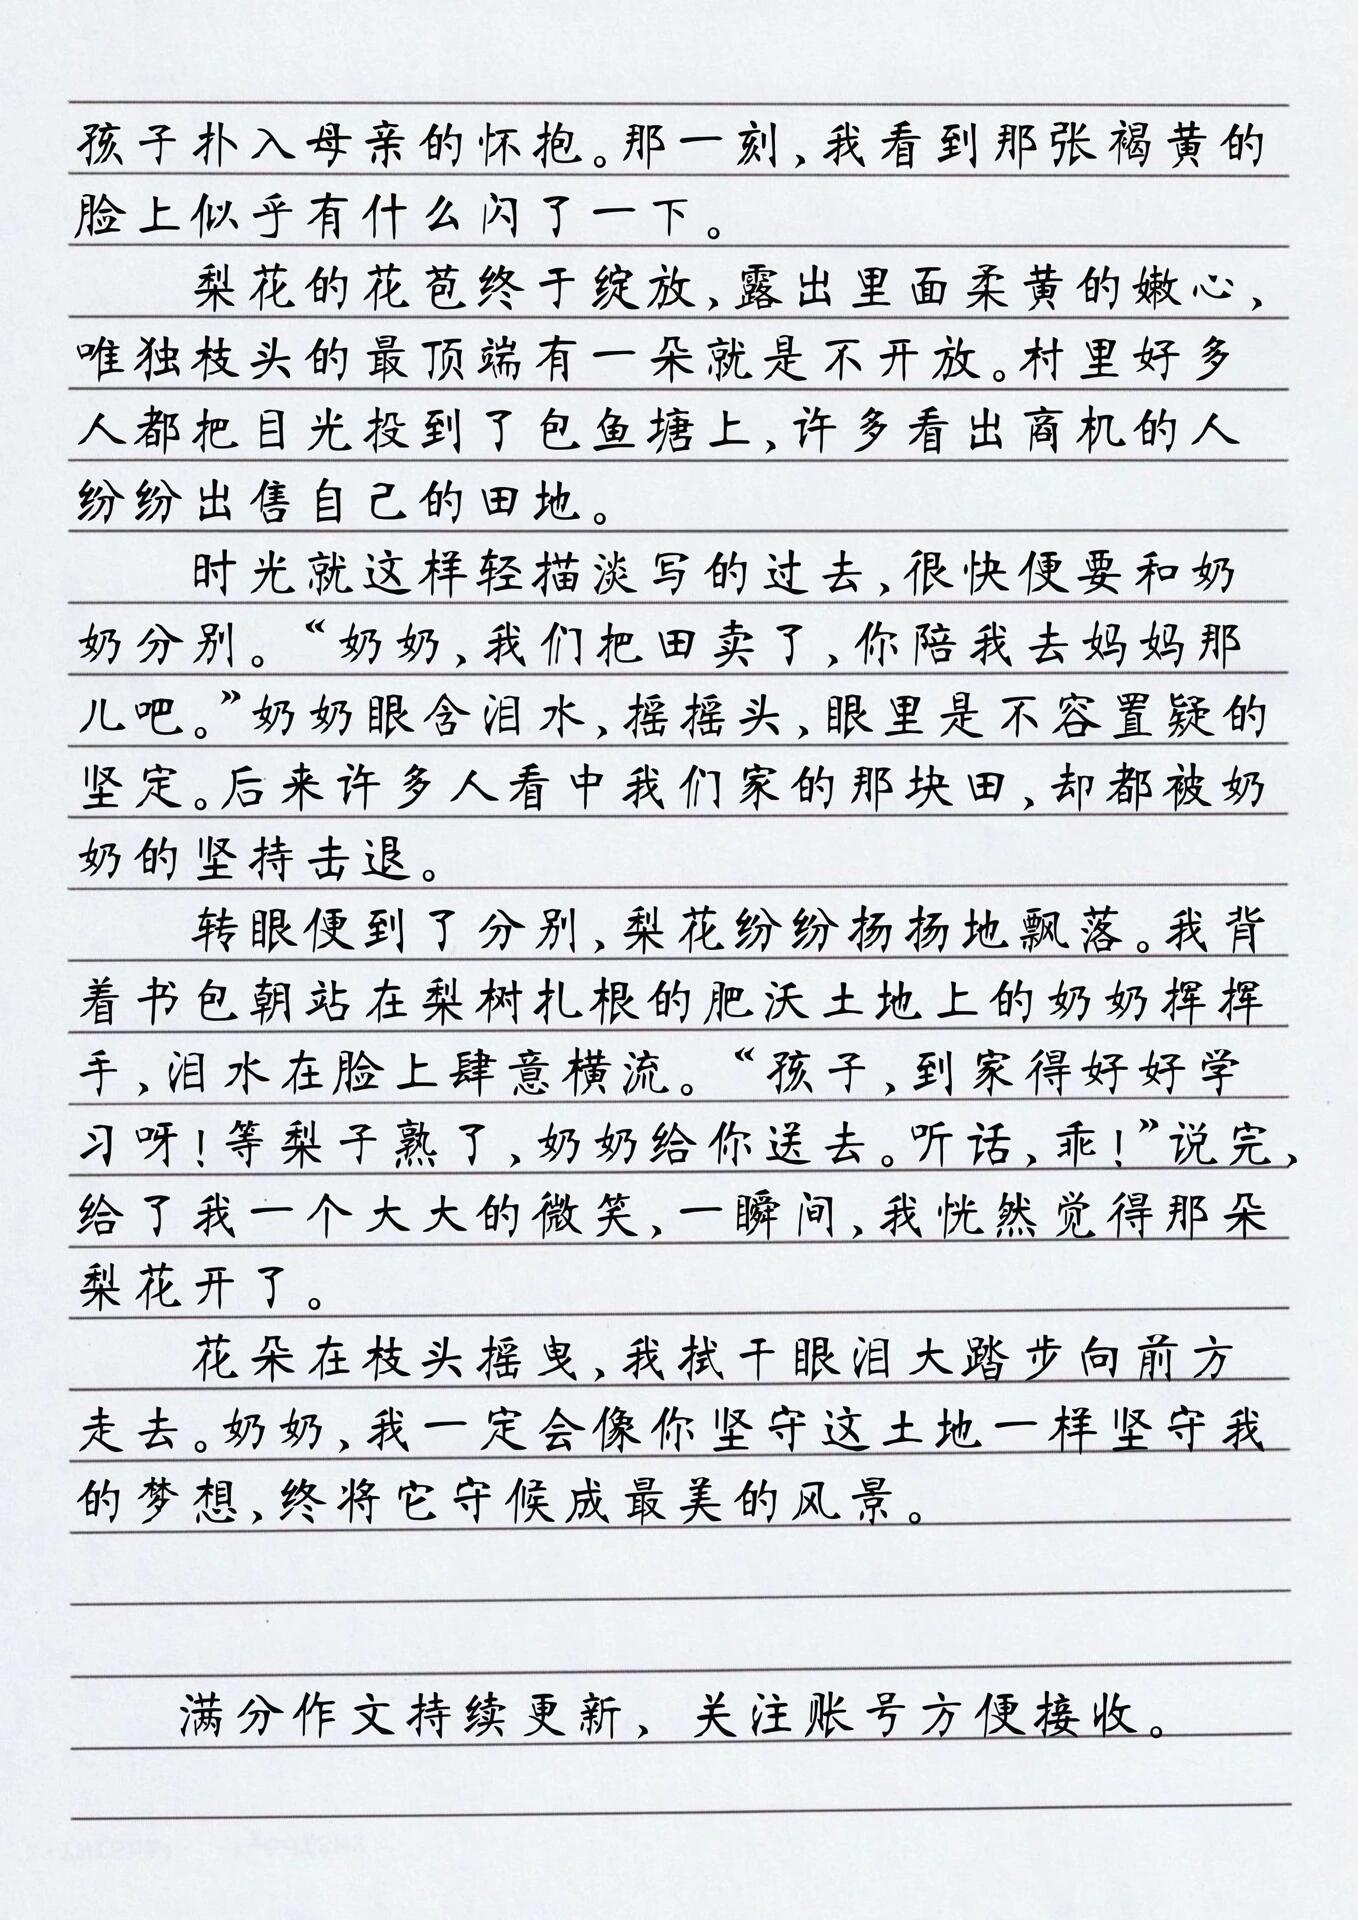 孩子扑入母亲的怀抱。那一刻,我看到那张褐黄的
脸上似乎有什么闪了一下。
梨花的花苞终于绽放,露出里面柔黄的嫩心,
唯独枝头的最顶端有一朵就是不开放。村里好多
人都把目光投到了包鱼塘上,许多看出商机的人
纷纷出售自己的田地。
时光就这样轻描淡写的过去,很快便要和奶
奶分别。“奶奶,我们把田卖了,你陪我去妈妈那
儿吧。”奶奶眼含泪水,摇摇头,眼里是不容置疑的
坚定。后来许多人看中我们家的那块田,却都被奶
奶的坚持击退。
转眼便到了分别,梨花纷纷扬扬地飘落。我背
着书包朝站在梨树扎根的肥沃土地上的奶奶挥挥
手,泪水在脸上肆意横流。“孩子,到家得好好学
习呀!等梨子熟了,奶奶给你送去。听话,乖!”说完,
给了我一个大大的微笑,一瞬间,我恍然觉得那朵
梨花开了。
花朵在枝头摇曳,我拭干眼泪大踏步向前方
走去。奶奶,我一定会像你坚守这土地一样坚守我
的梦想,终将它守候成最美的风景。
满分作文持续更新,关注账号方便接收。